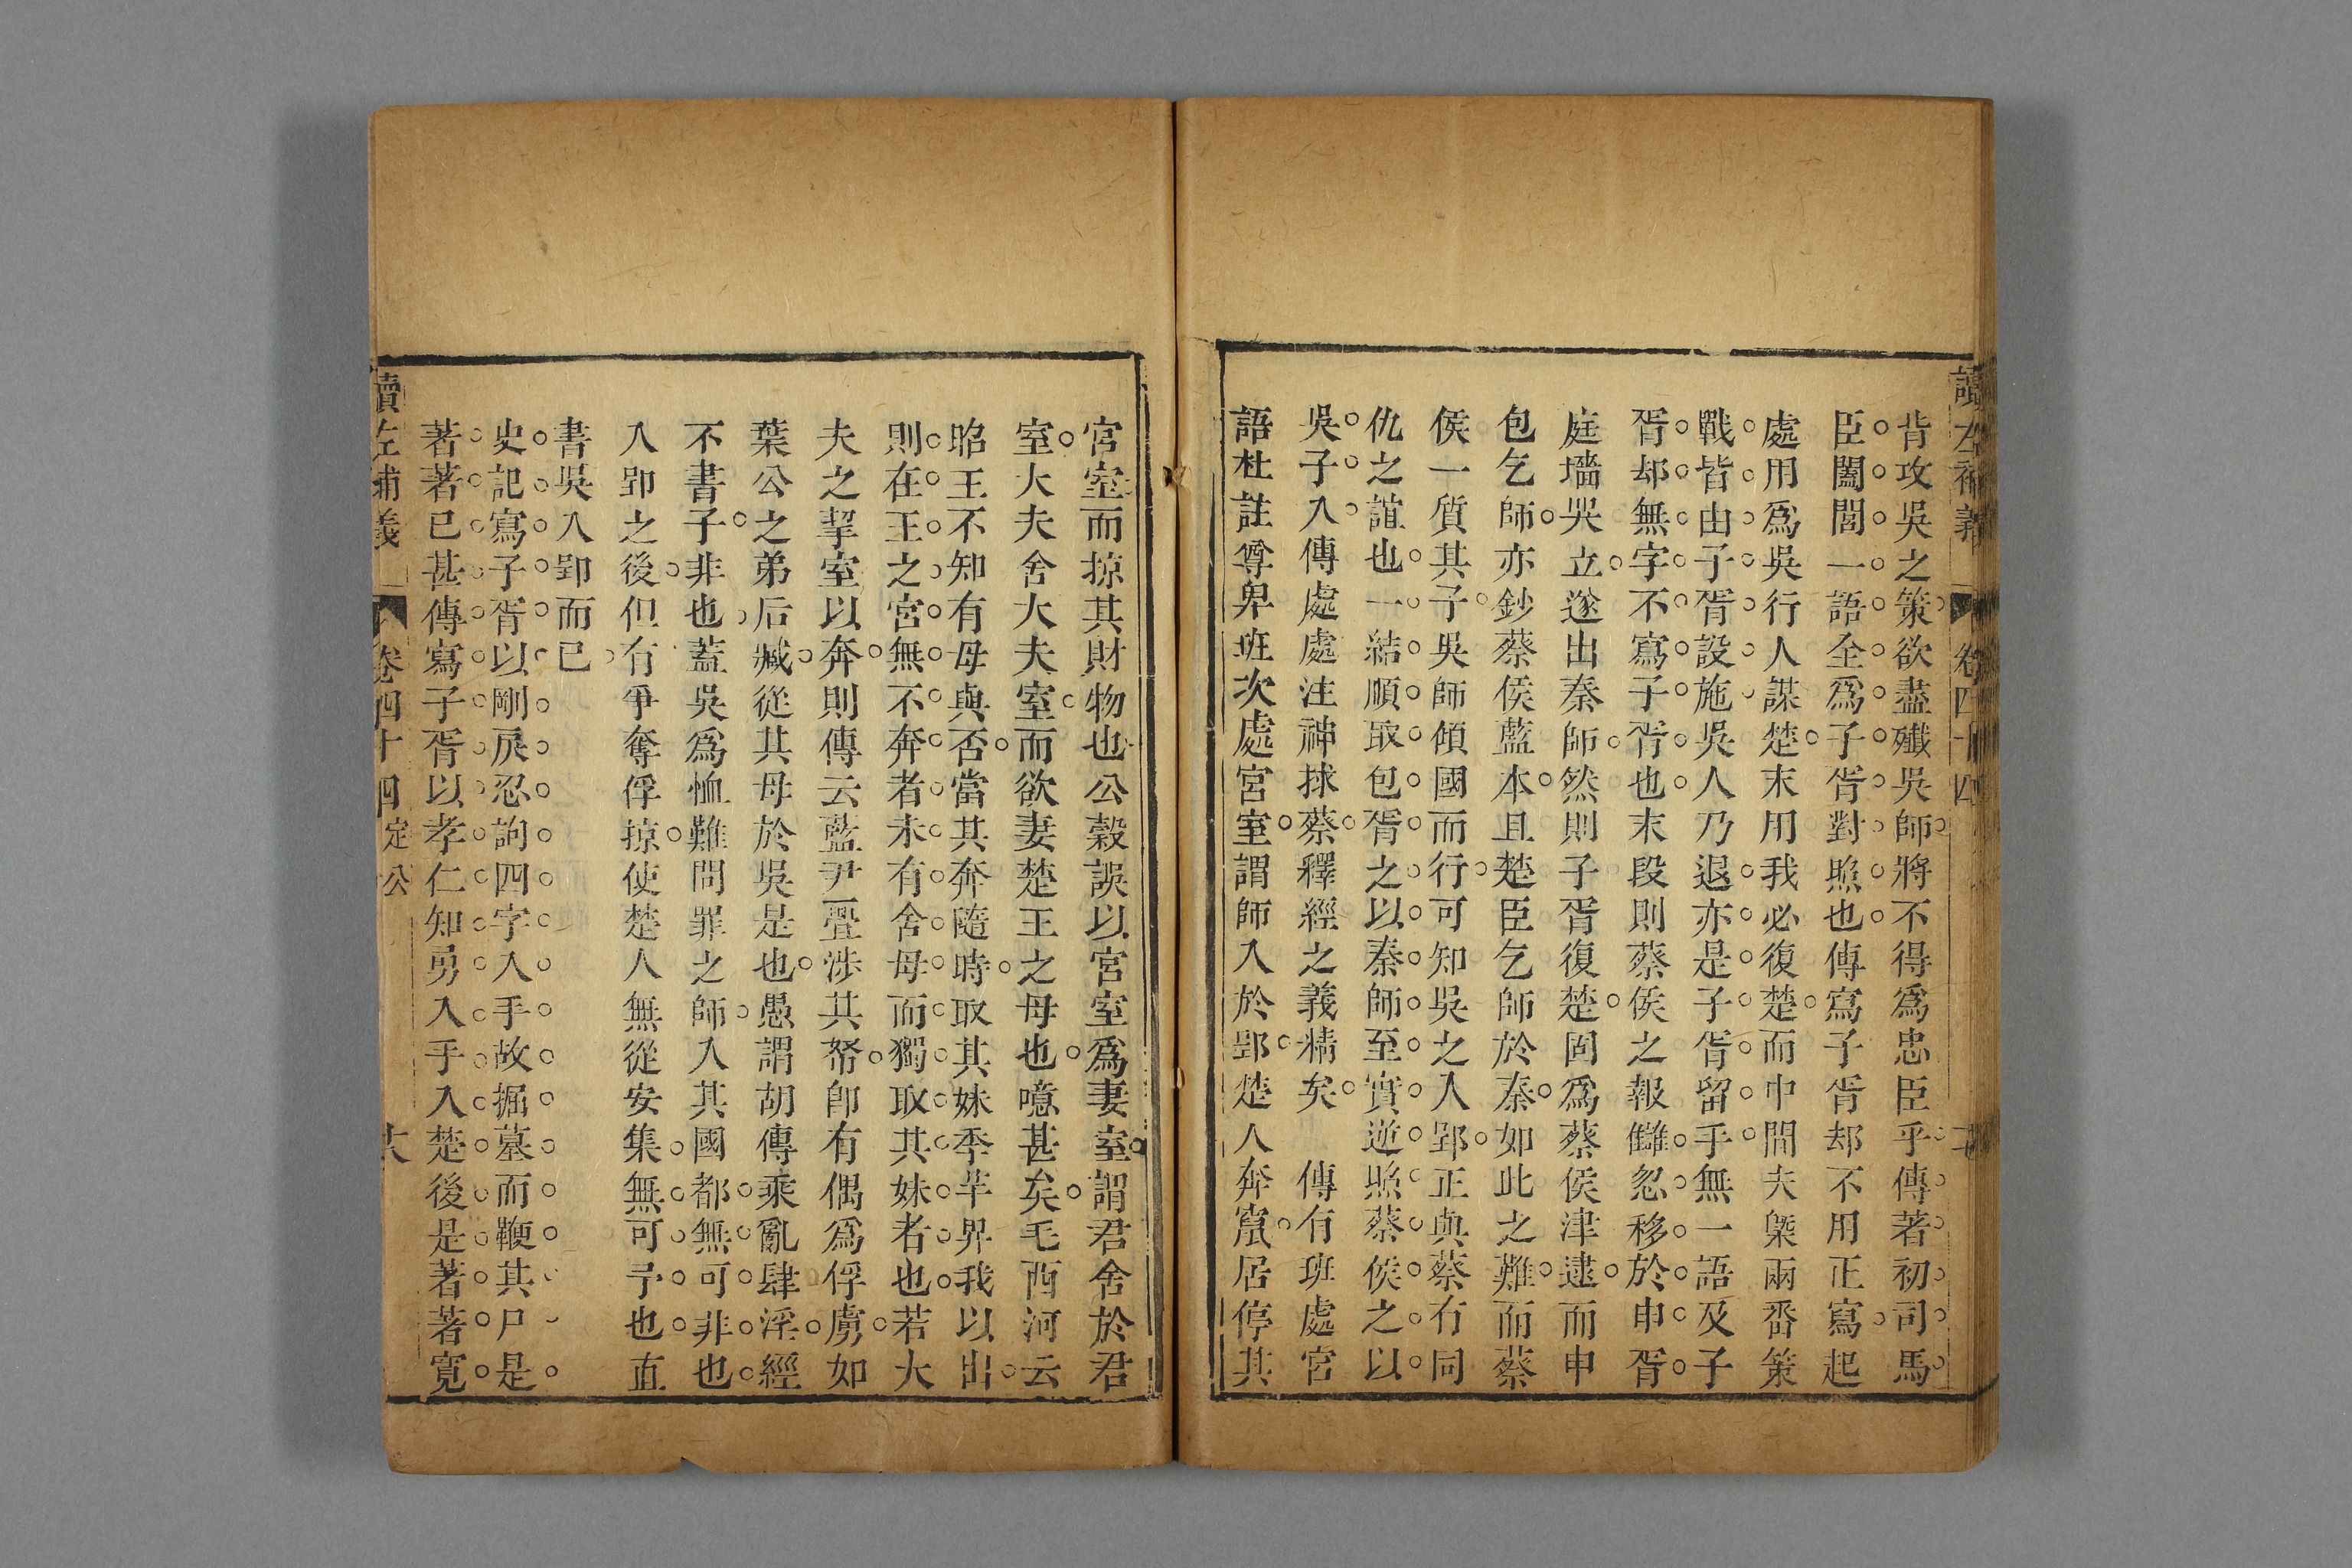 讀左補義 卷四十四
背攻吳之策欲盡殲吳師將不得爲忠臣乎傳著初司馬
臣闔閭一語全爲子胥對照也傳寫子胥却不用正寫起
處用爲吳行人謀楚末用我必復楚而中間夫槩兩番策
戰皆由子胥設施吳人乃退亦是子胥留手無一語及子
胥却無字不寫子胥也末段則蔡侯之報讎忽移於申胥
庭墻哭立遂出秦師然則子胥復楚固爲蔡侯津逮而申
包乞師亦鈔蔡侯藍本且楚臣乞師於秦如此之難而蔡
侯一質其子吳師傾國而行可知吳之入郢正與蔡有同
仇之誼也一結順取包胥之以秦師至實逆照蔡侯之以
吳子入傳處處注神捄蔡釋經之義精矣　傳有班處宮
語杜註尊卑班次處宮室謂師入於郢楚人奔竄居停其
宮室而掠其財物也公穀誤以宮室爲妻室謂君舍於君
室大夫舍大夫室而欲妻楚王之母也噫甚矣毛西河云
昭王不知有母與否當其奔隨時取其妹季羋畀我以出
則在王之宮無不奔者未有舍母而獨取其妹者也若大
夫之挈室以奔則傳云藍尹亹涉其帑卽有偶爲俘虜如
葉公之弟后臧從其母於吳是也愚謂胡傳乘亂肆淫經
不書子非也蓋吳爲恤難問罪之師入其國都無可非也
入郢之後但有爭奪俘掠使楚人無從安集無可予也直
書吳入郢而已
史記寫子胥以剛戾忍訽四字入手故掘墓而鞭其尸是
著著已甚傳寫子胥以孝仁知勇入手入楚後是著著寬
讀左補義 卷四十四 定公 六